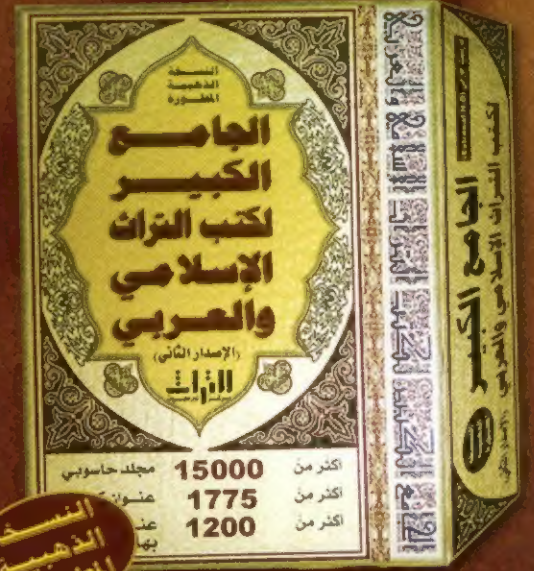 النسخة
الذهبية
المطورة
الجامع
الكبير
لكتب التراث
الإسلامي
والعربي
(الإصدار الثاني)
التراث
اكثر من 15000 مجلد حاسوبي
اكثر من 1775
اكثر من 1200
النسخة
الذهبية
الجامع الكبير
لكتب التراث الإسلامي والعربي
(الإصدار الثاني)